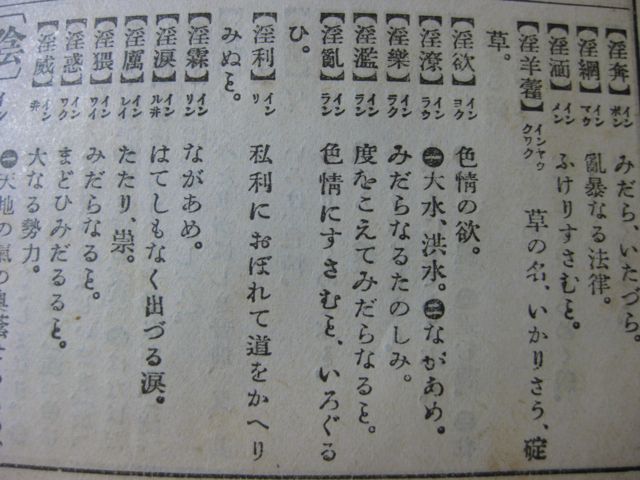 【淫奔】インポン みだら、いたづら。
【淫網】インマウ 亂暴なる法律。
【淫湎】インメン ふけりすさむと。
【淫羊藿】インヤウクワク 草の名、いかりさう、碇
草。
【淫欲】インヨク 色情の欲。
【淫潦】インラウ ㊀大水、洪水。㊁ながあめ。
【淫樂】インラク みだらなるたのしみ。
【淫濫】インラン 度をこえてみだらなると。
【淫亂】インラン 色情にすさむと、いろぐる
ひ。
【淫利】インリ 私利におぼれて道をかへり
みぬと。
【淫霖】インリン ながあめ。
【淫淚】インルヰ はてしもなく出づる涙。
【淫厲】インレイ たたり、祟。
【淫猥】インワイ みだらなると。
【淫惑】インワク まどひみだるると。
【淫威】インヰ 大なる勢力。
【陰】イン ㊀天地の氣の